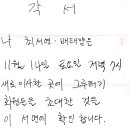 각 서
나 최서연·배태양은
11월 14일 토요일 저녁 7시
새로이사한 곳에 그루터기
회원들을 초대한 것을
이 서면에 확인합니다.